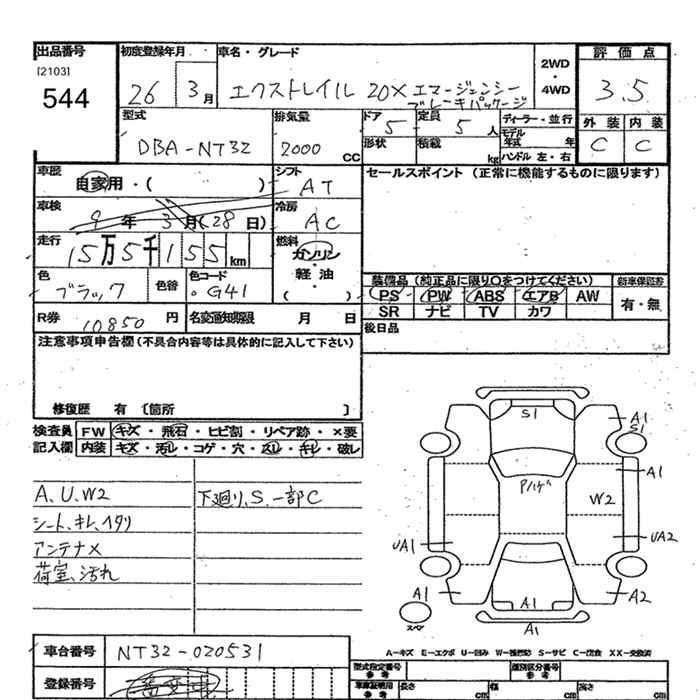 出品番号 初度登録年月 車名・グレード 2WD・4WD 評価点
[2103]
544 26 3月 エクストレイル 20X エマージェンシーブレーキパッケージ 3.5
型式 排気量 ドア 定員 ディーラー・並行 外装 内装
DBA-NT32 2000 CC 5 5人 モデル年式 年 C C
形状 積載 kg ハンドル 左・右
車歴 自家用・( ) シフト AT セールスポイント (正常に機能するものに限ります)
車検 9年 3月(28日) 冷房 AC
走行 15万5千155km 燃料 ガソリン・軽油・( )
装備品 (純正品に限り○をつけてください) 新車保証書
色 ブラック 色替 色コード G41 PS PW ABS エアB AW 有・無
SR ナビ TV カワ
R券 10850円 名変通知期限 月 日 後日品
注意事項申告欄(不具合内容等は具体的に記入して下さい)
修復歴 有 〔箇所 〕
検査員 FW キズ・飛石・ヒビ割・リペア跡・×要
記入欄 内装 キズ・汚レ・コゲ・穴・スレ・キレ・破レ
A、U、W2 下廻り、S、一部C
シート、キレ、ヘタリ
アンテナ×
荷室、汚れ
S1
A1
S1
A1
W2
UA1
UA2
A1
A2
A1
スペア
A1
A-キズ E-エクボ U-凹み W-補修跡 S-サビ C-腐食 XX-交換済
車台番号 NT32-020531
型式指定番号 参考 類別区分番号 参考
登録番号
車庫証明用 参考 長さ cm 幅 cm 高さ cm